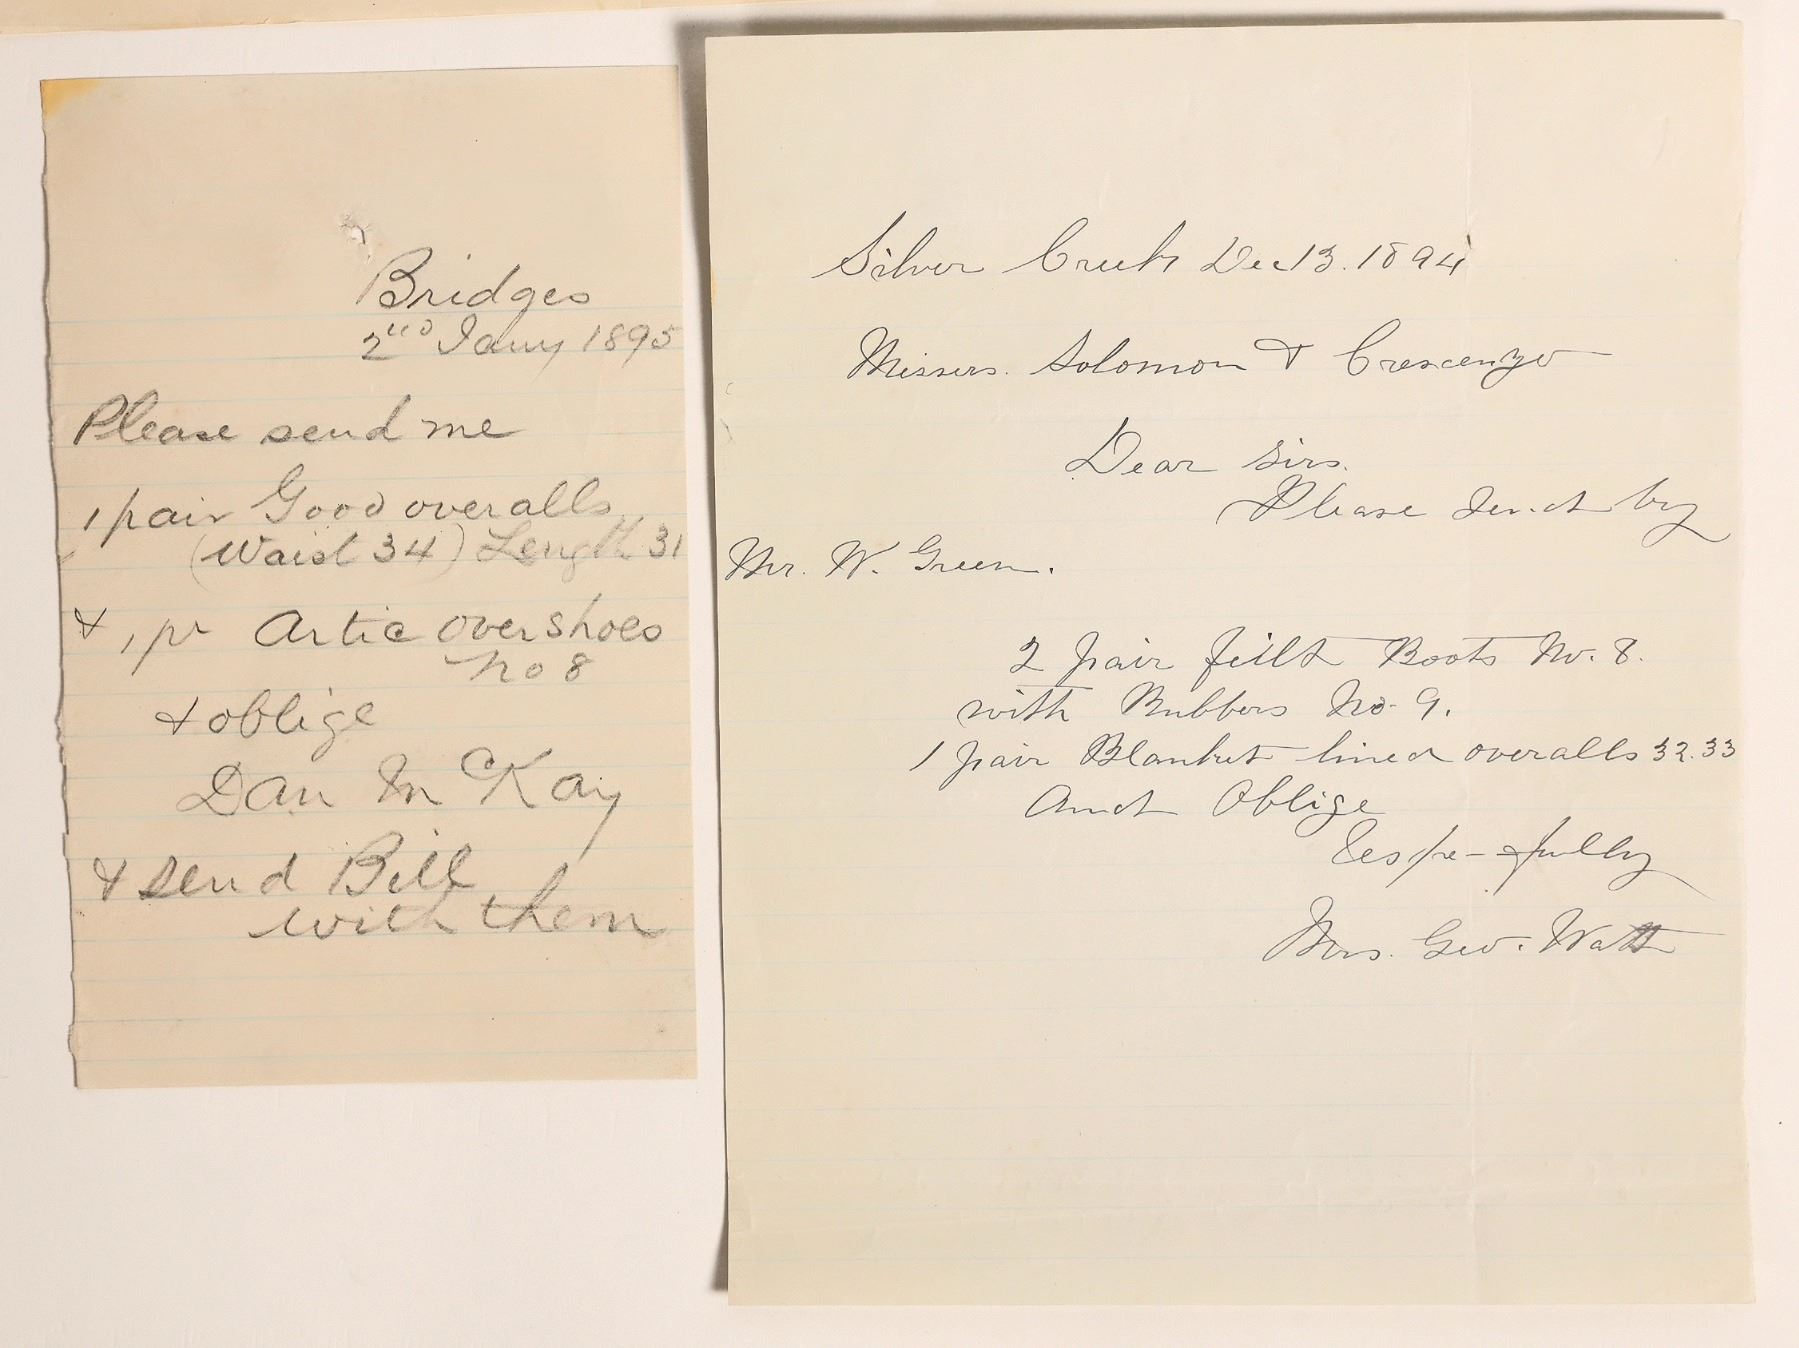 Bridges
2nd Jany 1895
Please send me
1 pair Good overalls
(Waist 34) Length 31
& 1 pr Artic overshoes
no 8
& oblige
Dan McKay
& send Bill
with them
Silver Creek Dec 13. 1894
Missers. Solomon & Crescenzo
Dear Sirs.
Please Send by
Mr. W. Green.
2 pair filt Boots No. 8.
with Rubbers No. 9.
1 pair Blanket lined overalls 32.33
And Oblige
Respe-fully
Mrs. Geo. Watt